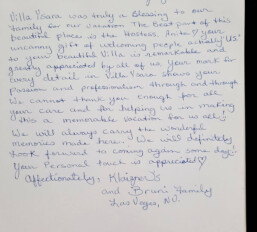 Villa Ysara was truly a blessing to our
family for our vacation. The best part of this
beautiful place is the hostess, your
uncanny gift of welcoming people actually "US"
to your beautiful Villa is remarkable and
greatly appreciated by all of us, your mark for
every detail in Villa Ysara shows your
passion and professionalism through and through.
We cannot thank you enough for all
your care and for helping us in making
this a memorable vacation for us all!
We will always carry the wonderful
memories made here. We will definitely
look forward to coming again some day!
Your Personal touch is appreciated♡
Affectionately,
and Bruni Family
Las Vegas, NV.